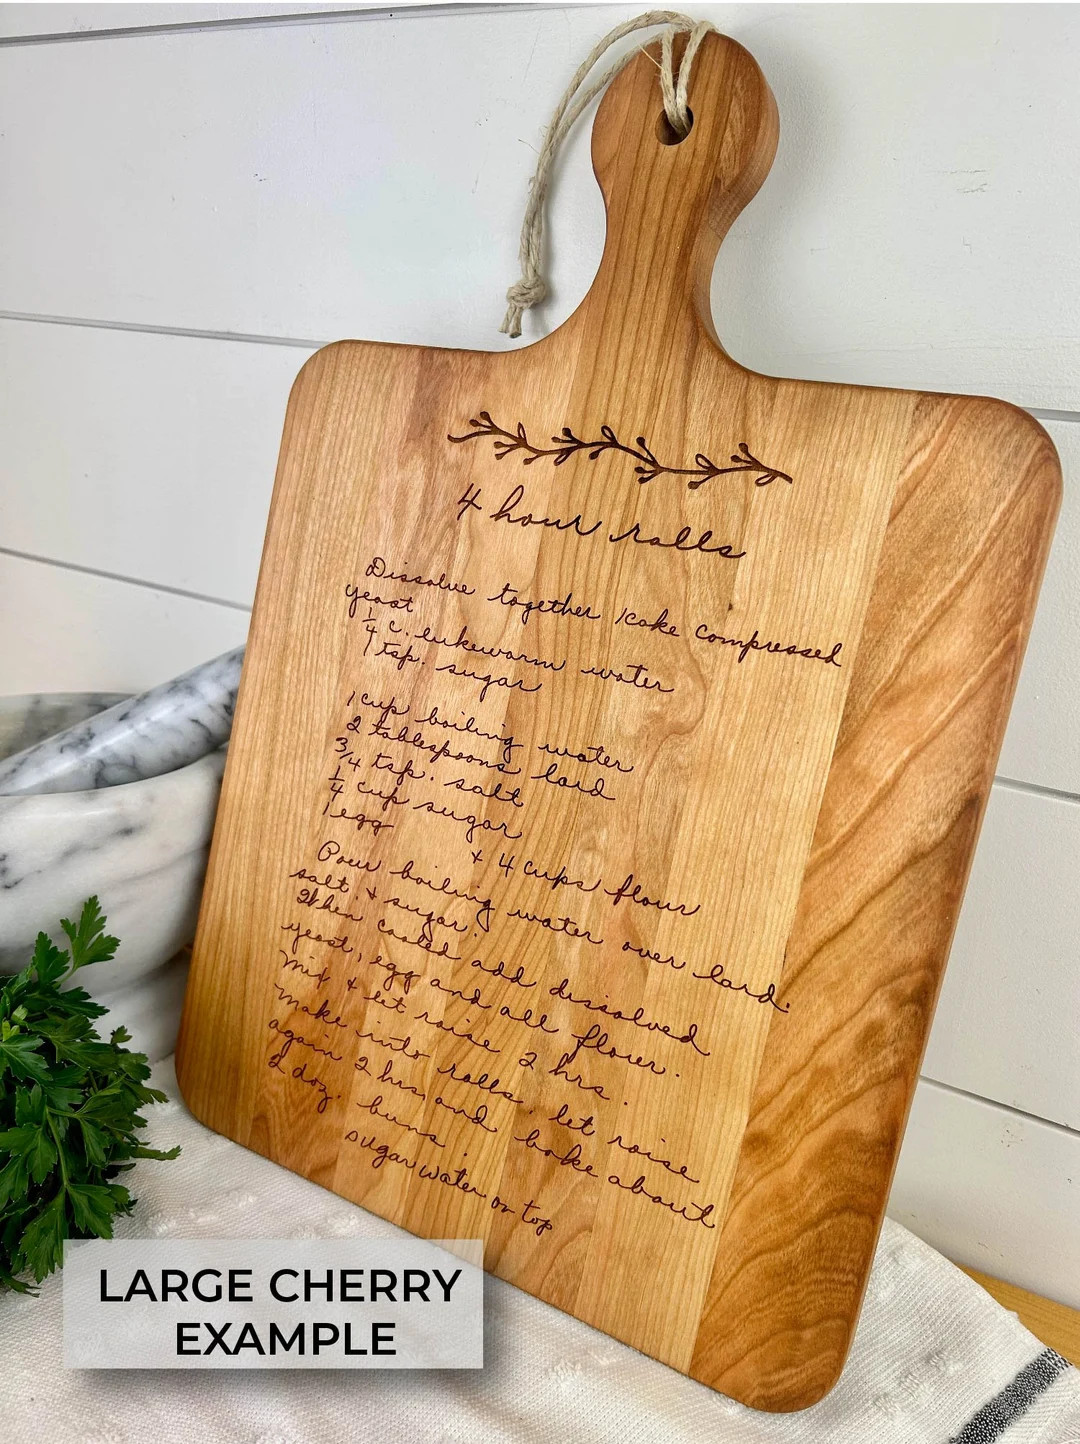 4 hour rolls
Dissolve together 1 cake compressed
yeast
1/4 c. lukewarm water
1 tsp. sugar
1 cup boiling water
2 tablespoons lard
3/4 tsp. salt
1/4 cup sugar
1 egg
+ 4 cups flour
Pour boiling water over lard.
salt + sugar.
When cooled add dissolved
yeast, egg and all flour.
Mix + let raise 2 hrs.
Make into rolls. let raise
again 2 hrs and bake about
2 doz. buns.
sugar water on top
LARGE CHERRY
EXAMPLE